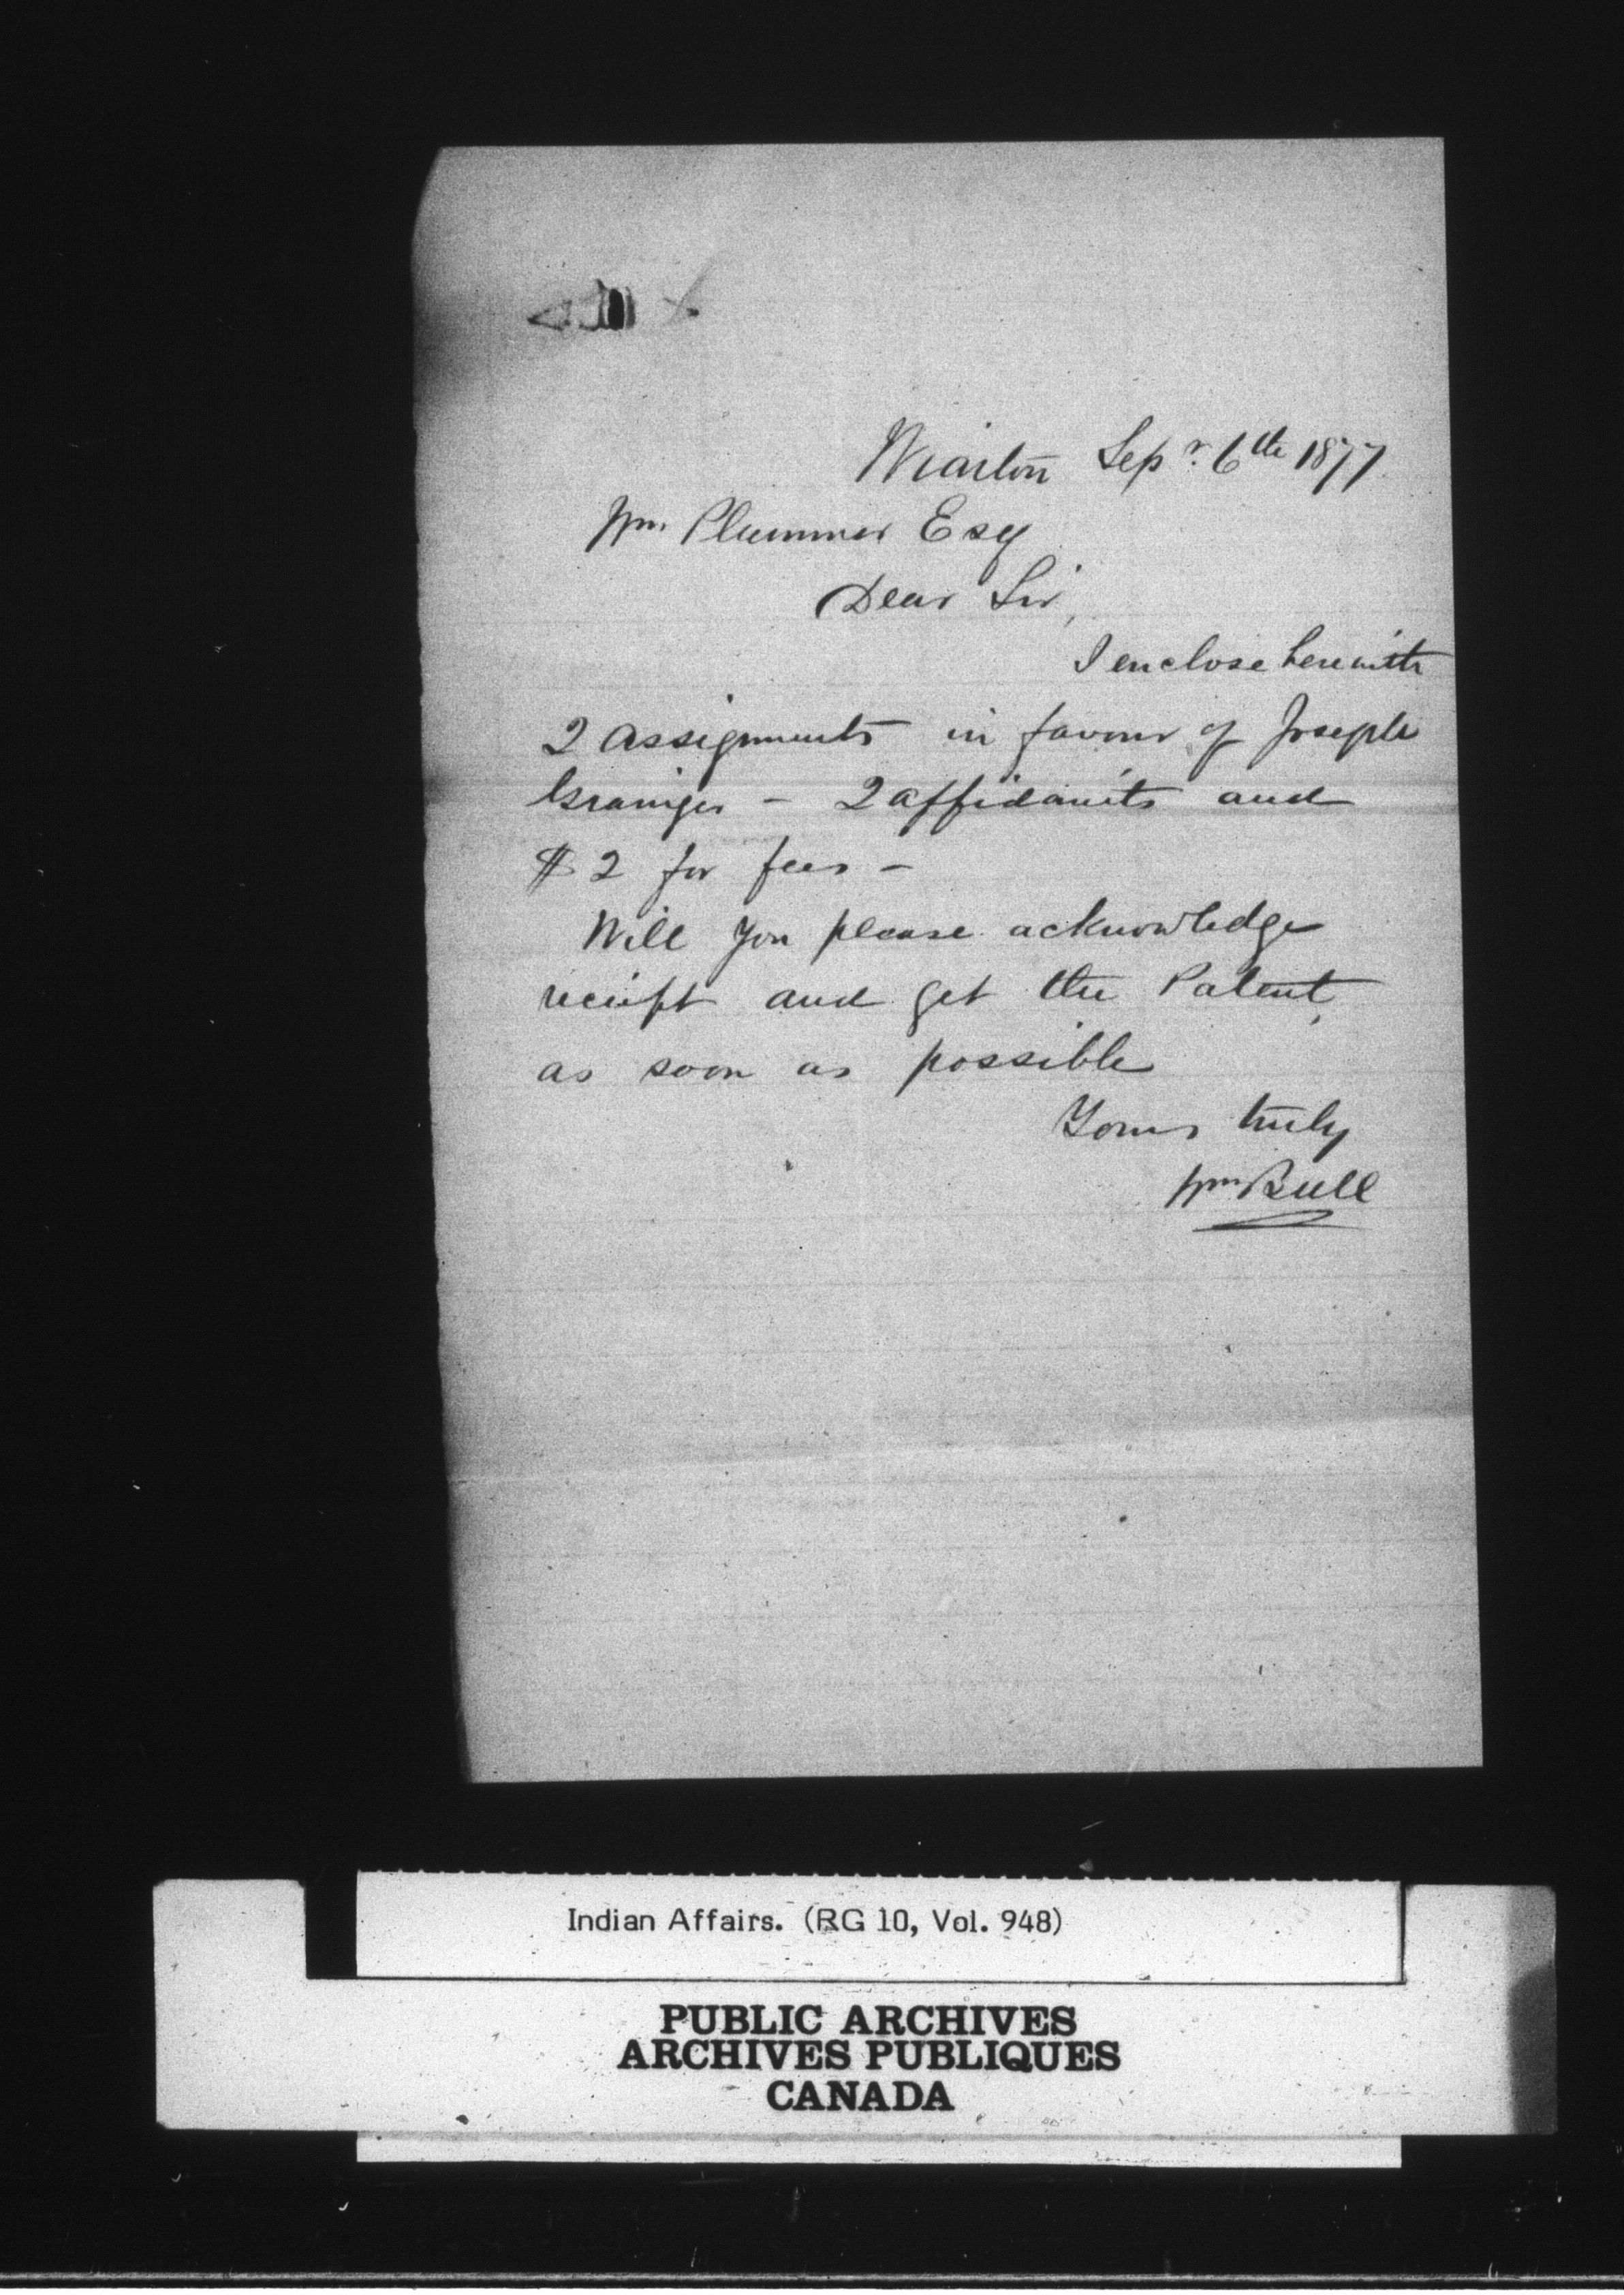 Wiarton Sepr. 6th 1877
Wm. Plummer Esq
Dear Sir,
I enclose herewith
2 assignments in favour of Joseph
Grainger - 2 affidavits and
$2 for fees -
Will you please acknowledge
receipt and get the Patent
as soon as possible
Yours truly
Wm Bull
Indian Affairs. (RG 10, Vol. 948)
PUBLIC ARCHIVES
ARCHIVES PUBLIQUES
CANADA